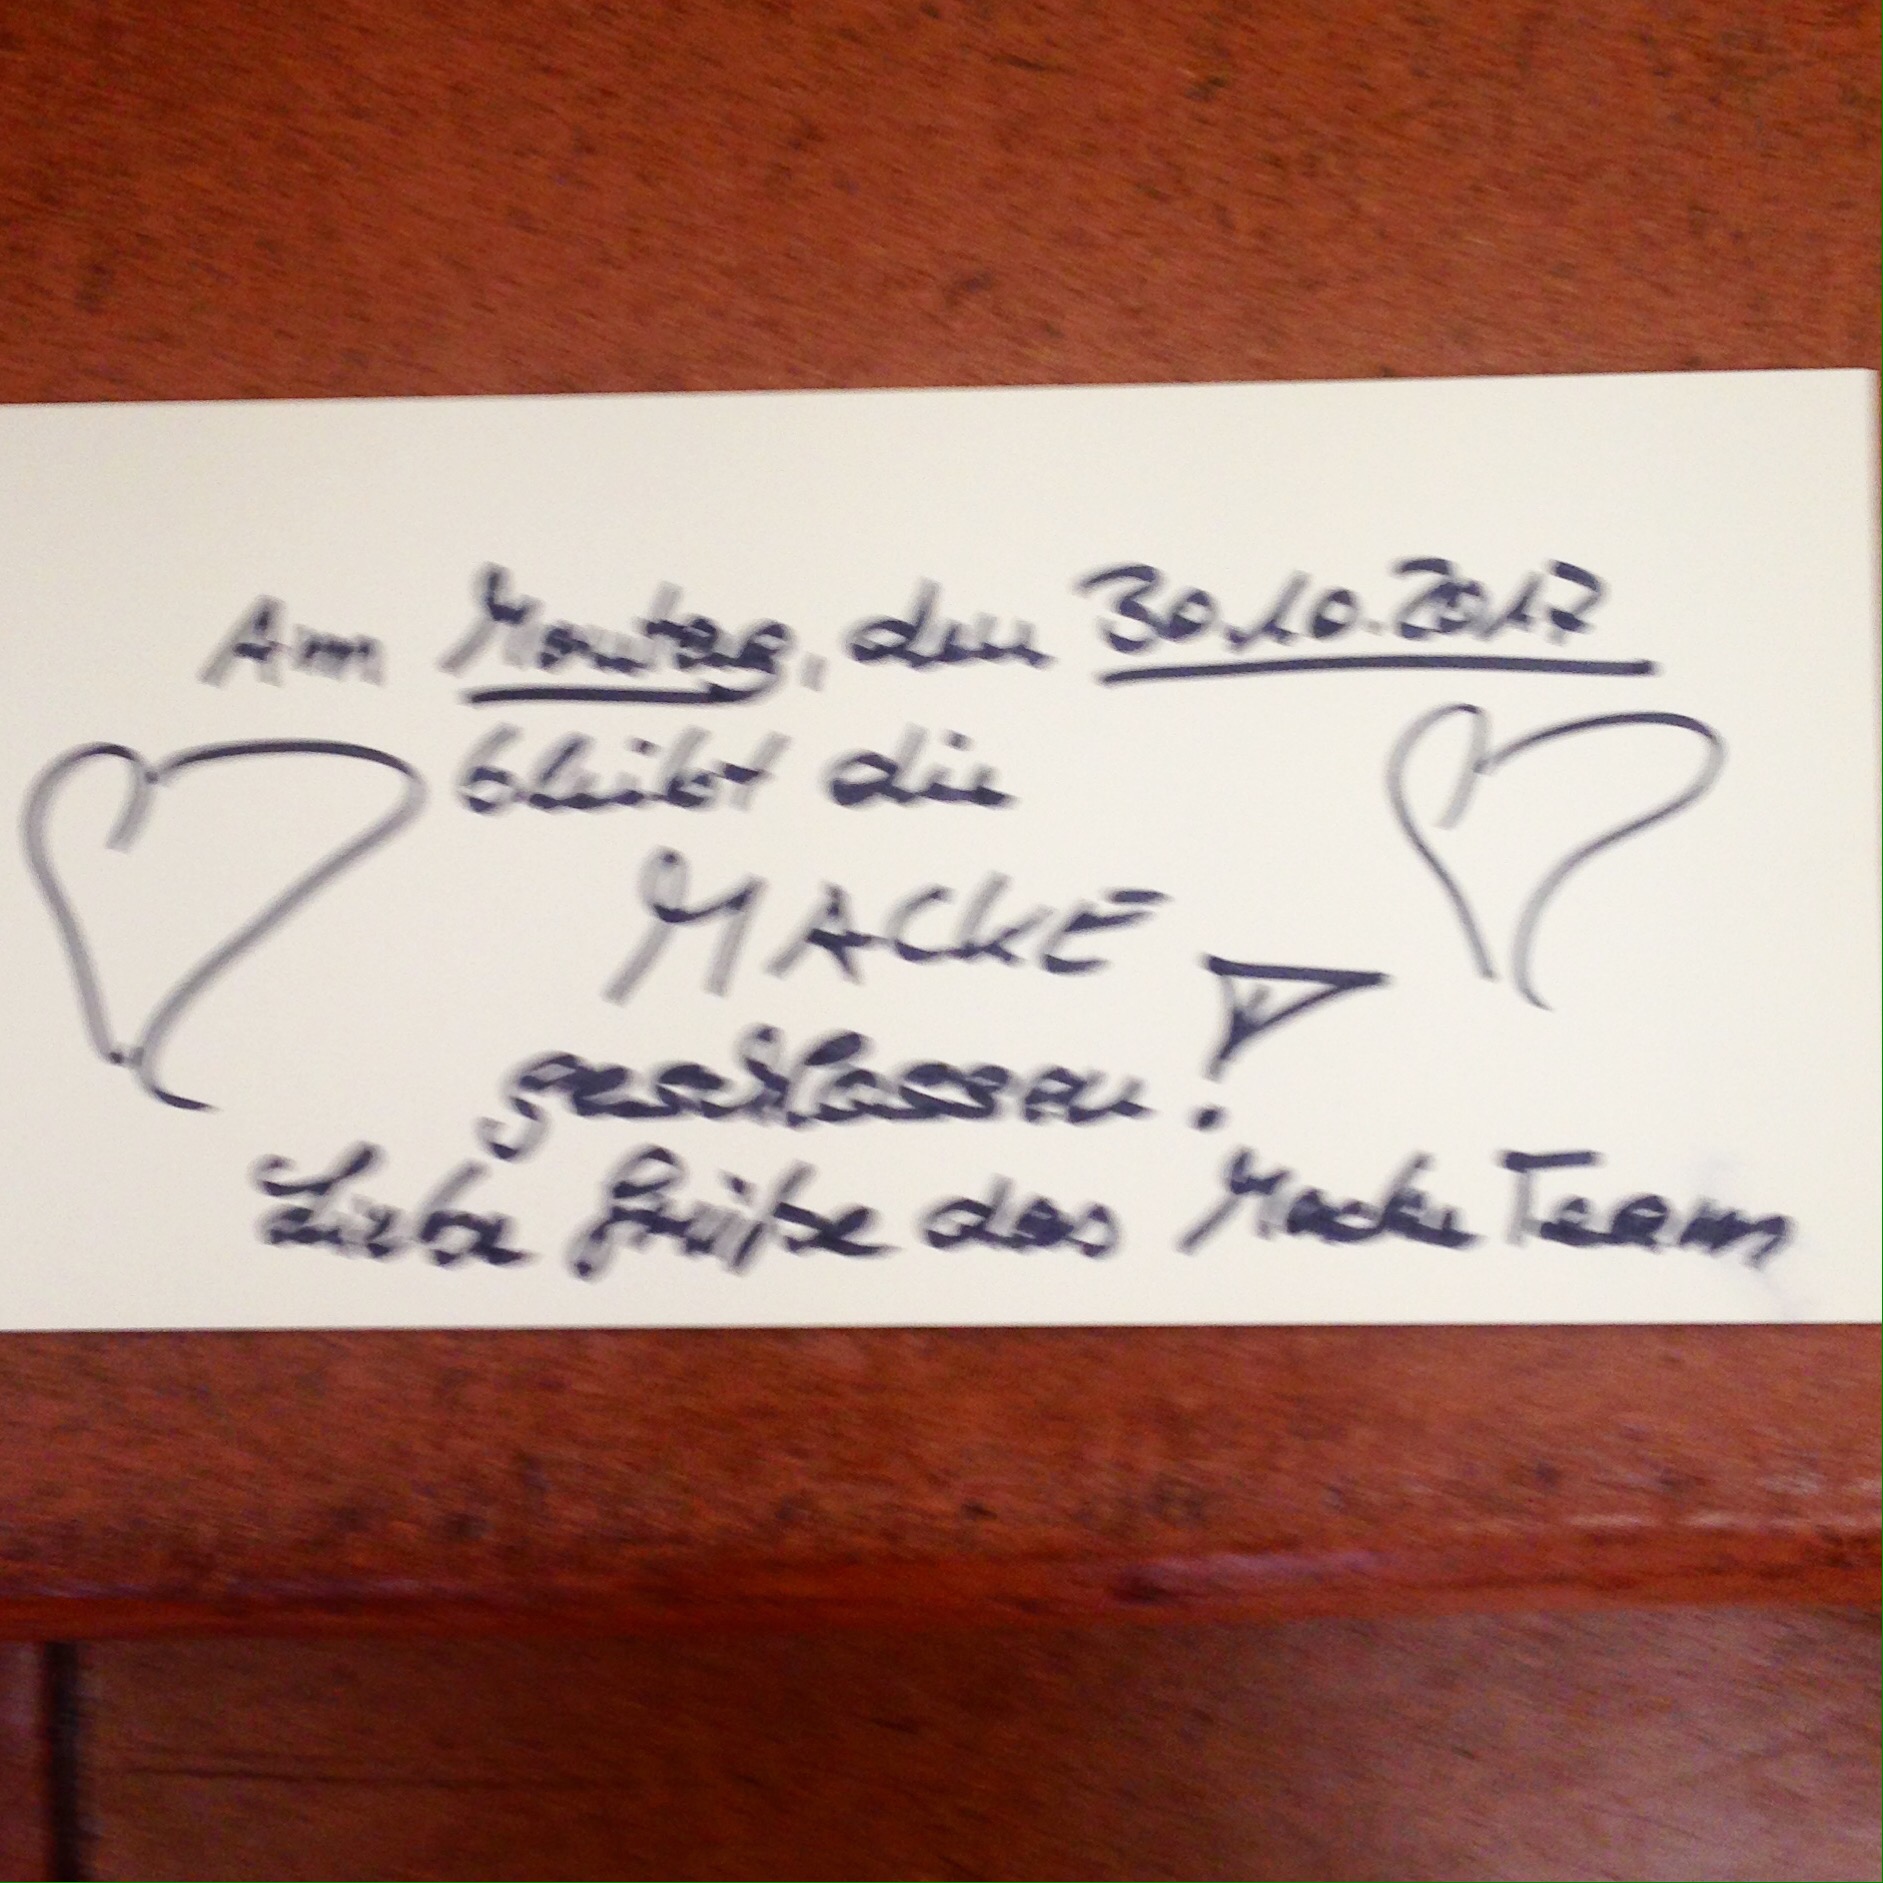 Am Montag, den 30.10.2017
bleibt die
MACKE
geschlossen!
Liebe Grüße das Macke Team